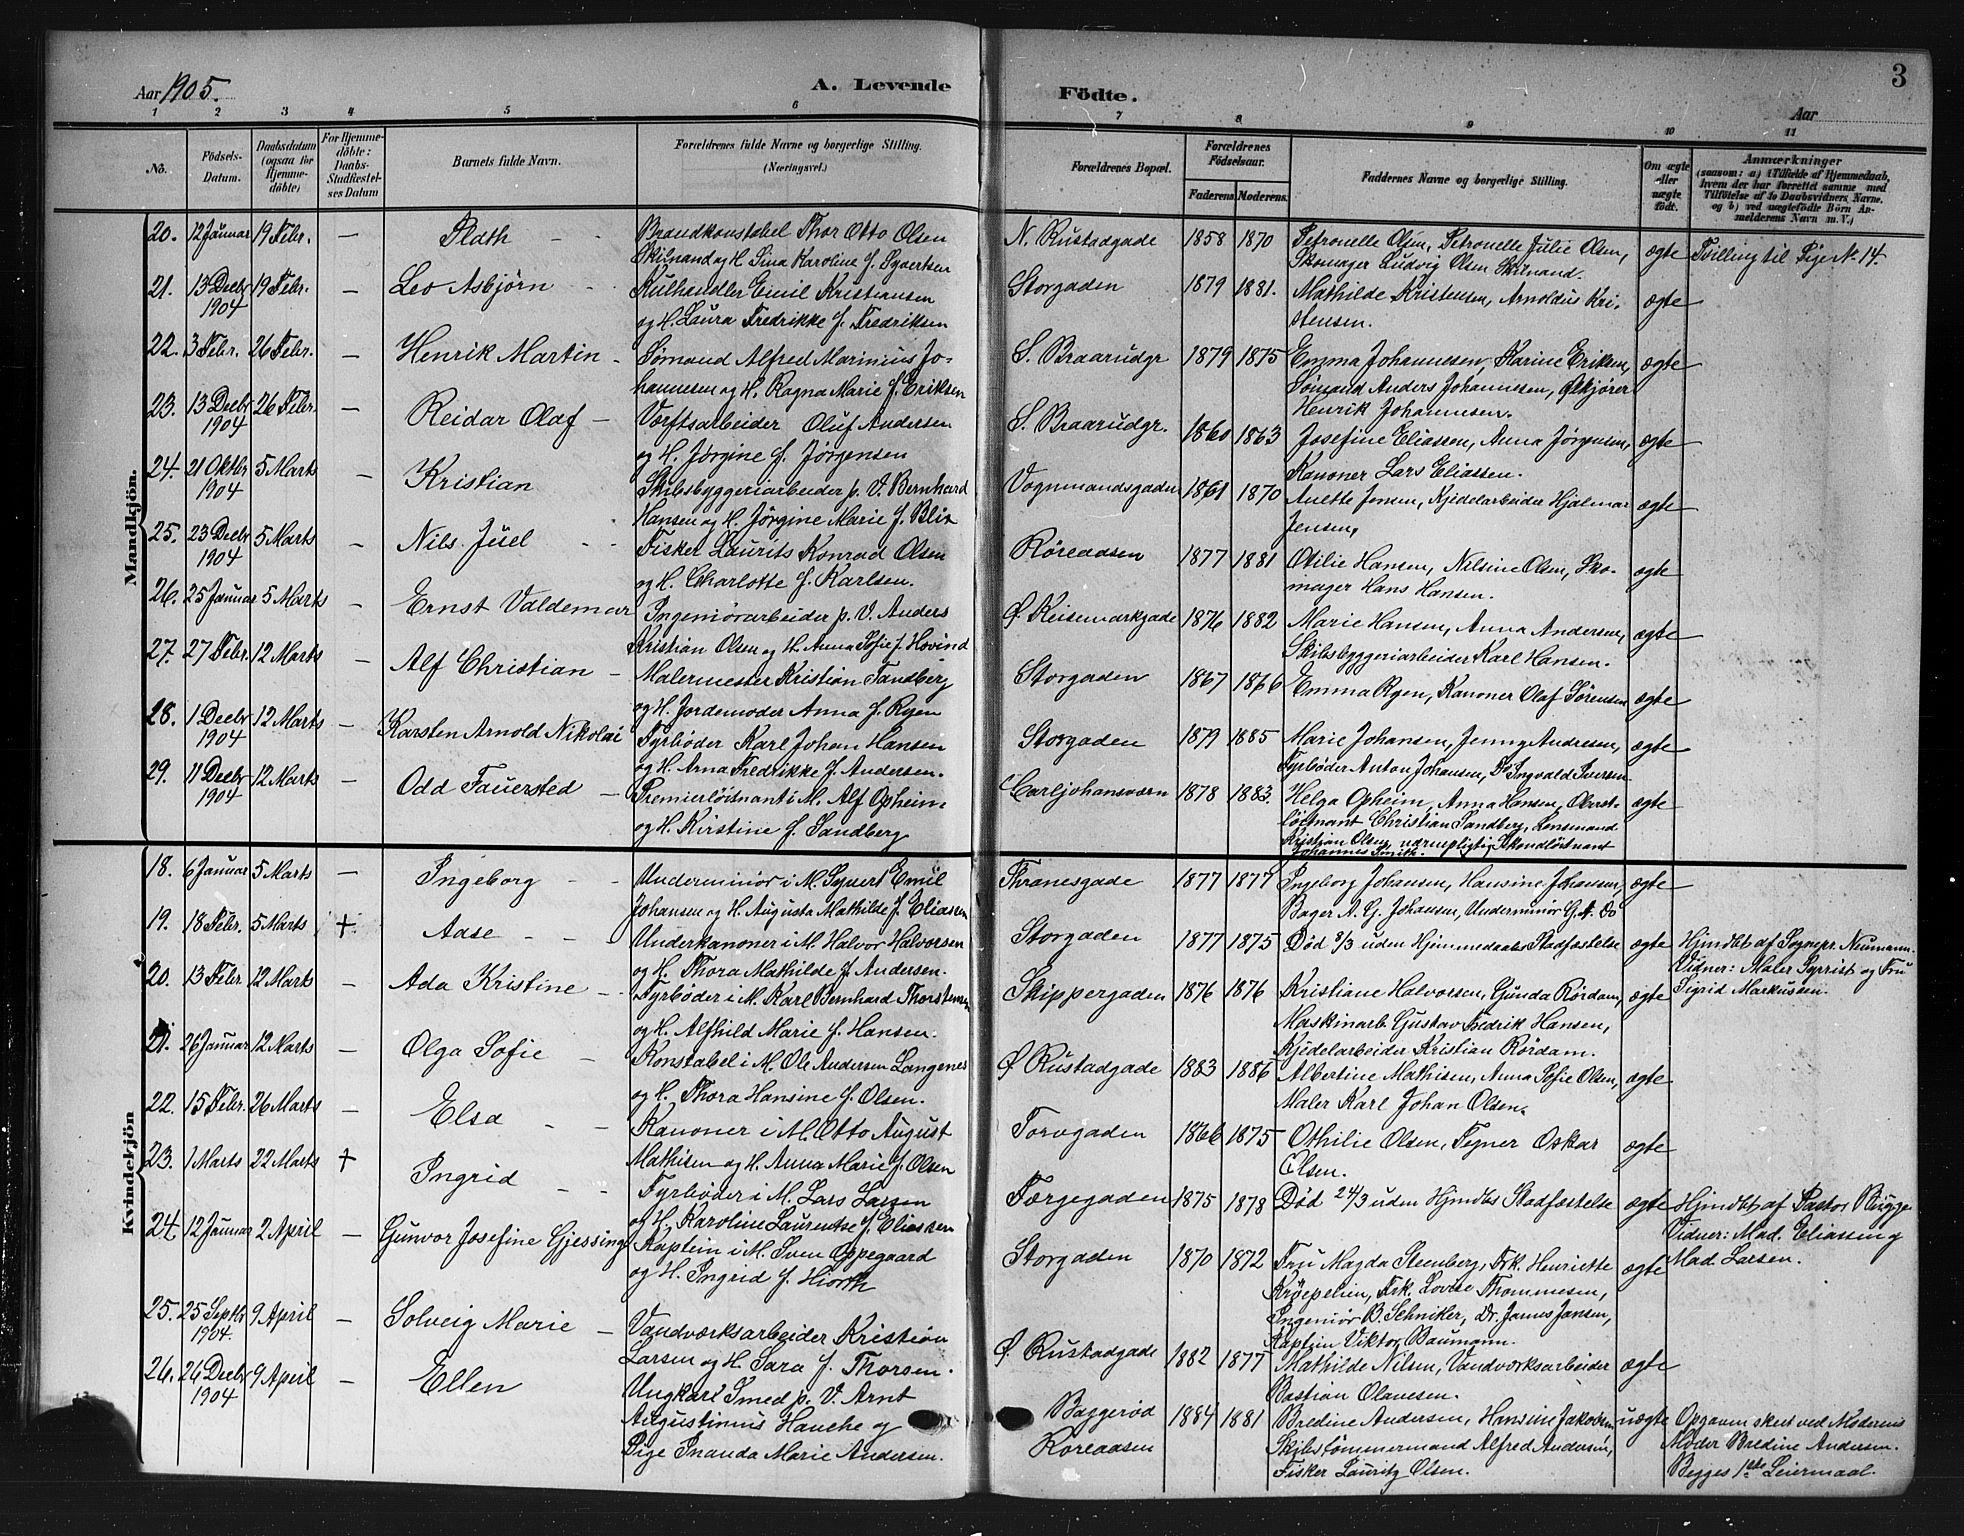 Aar 1905.
A. Levende
Födte.
Aar
3
1 2 3 4 5 6 7 8 9 10 11
No.
Födsels-Datum.
Daabsdatum (ogsaa for Hjemme-döbte)
For Hjemme-döbte: Daabs-Stadfæstel-ses Datum
Barnets fulde Navn.
Forældrenes fulde Navne og borgerlige Stilling. (Næringsvei.)
Forældrenes Bopæl.
Forældrenes Födselsaar.
Faderens Moderens
Faddernes Navne og borgerlige Stilling.
Om ægte eller uægte födt.
Anmærkninger
(saasom: a) i Tilfælde af Hjemmedaab, hvem der har forrettet samme med Tilföielse af to Daabsvidners Navne, og b) ved uægtefödte Börn An-melderens Navn m. V.)
Mandkjön.
20. 12 Januar 19 Febr. —
Brandkonstabel Thor Otto Olsen
Skilnand og H. Sina Karoline f. Syvertsen
N. Rustadgade 1858 1870
Petronelle Olsen, Petronelle Julie Olsen,
Skomager Ludvig Olsen Skilnand.
ægte Tvilling til Pige No 14.
21. 13 Decbr 1904 19 Febr. — Leo Asbjörn
Kulhandler Emil Kristiansen
og H. Laura Fredrikke f. Fredriksen
Storgaden 1879 1881.
Mathilde Kristensen, Arnoldus Kri-
stensen.
ægte
22. 3 Febr. 26 Febr. — Henrik Martin
Sömand Alfred Marinius Jo-
hannesen og H. Ragna Marie f. Eriksen
S. Braarudgr 1879 1875
Emma Johannesen, Karine Eriksen,
Sömand Anders Johannesen,
Henrik Johannesen.
ægte
23. 13 Decbr 1904 26 Febr. — Reidar Olaf
Værftsarbeider Oluf Andersen
og H. Jörgine f. Jörgensen
S. Braarudgr. 1860 1863
Josefine Eliassen, Anna Jörgensen,
Kanoner Lars Eliassen.
ægte
24. 21 Oktbr 1904 5 Marts — Kristian
Skibsbyggeriarbeider p. V. Bernhard
Hansen og H. Jörgine Marie f. Blix
Vognmandsgaden 1861 1870
Anette Jensen, Kjedelarbeider Hjalmar
Jensen,
ægte
25. 23 Decbr 1904 5 Marts — Nils Juel
Fisker Laurits Konrad Olsen
og H. Charlotte f. Karlsen.
Röreaasen 1877 1881
Otilie Hansen, Nilsine Olsen, Sko-
mager Hans Hansen.
ægte
26. 25 Januar 5 Marts — Ernst Valdemar
Ingeniörarbeider p. V. Anders
Kristian Olsen og H. Anna Sofie f. Hovind
Ø. Keisemarkgade 1876 1882
Marie Hansen, Anna Andersen,
Skibsbyggeriarbeider Karl Hansen.
ægte
27. 27 Febr. 12 Marts — Alf Christian
Malermester Kristian Sandberg
og H. Jordemoder Anna f. Ryen
Storgaden 1867 1866
Emma Ryen, Kanoner Olaf Sörensen
ægte
28. 1 Decbr 1904 12 Marts — Karsten Arnold Nikolai
Fyrböder Karl Johan Hansen
og H. Arna Fredrikke f. Andersen.
Storgaden 1879 1885
Marie Johansen, Jenny Andresen,
Fyrböder Anton Johansen, Do Ingvald Iversen
ægte
29. 11 Decbr 1904 12 Marts — Odd Fauersted
Premierlöitnant i M. Alf Opheim
og H. Kirstine f. Sandberg
Carljohansværn 1878 1883.
Helga Opheim, Anna Hansen, Oberst-
löitnant Christian Sandberg, Lensmand
Kristian Olsen, værnepligtig Sekondlöitnant
Johannes Smith.
ægte
Kvindekjön
18. 6 Januar 5 Marts — Ingeborg
Underminör i M. Syvert Emil
Johansen og H. Augusta Mathilde f. Eliassen
Thranesgade 1877 1877
Ingeborg Johansen, Hansine Johansen,
Bager A. G. Johansen, Underminör G. A. Do
ægte
19. 18 Febr. 5 Marts † Aase
Underkanoner i M. Halvor Halvorsen
og H. Thora Mathilde f. Andersen.
Storgaden 1877 1875
Död 8/3 uden Hjemmedaabs Stadfæstelse
ægte
Hjmdbt af Sognepr. Neumann.
Vidner: Maler Syrrist og Fru
Sigrid Markussen.
20. 13 Febr. 12 Marts — Ada Kristine
Fyrböder i M. Karl Bernhard Thorstensen
og H. Alfhild Marie f. Hansen.
Skippergaden 1876 1876
Kristiane Halvorsen, Gunda Rördam,
Maskinarb. Gustav Fredrik Hansen,
Kjedelarbeider Kristian Rördam.
ægte
21. 26 Januar 12 Marts — Olga Sofie
Konstabel i M. Ole Andersen Langenes
og H. Thora Hansine f. Olsen.
Ø Rustadgade 1883 1886
Albertine Mathisen, Anna Sofie Olsen,
Maler Karl Johan Olsen.
ægte
22. 15 Febr. 26 Marts — Elsa
Kanoner i M. Otto August
Mathisen og H. Anna Marie f. Olsen
Torvgaden 1866 1875
Othilie Olsen, Tegner Oskar
Olsen.
ægte
23. 1 Marts 22 Marts † Ingrid
Fyrböder i M. Lars Larsen
og H. Karoline Laurentse f. Eliassen
Færgegaden 1875 1878
Död 24/3 uden Hjmdbts Stadfæstelse
ægte
Hjmdbt af Pastor Bugge
Vidner: Mad. Eliassen og
Mad Larsen.
24. 12 Januar 2 April — Gunvor Josefine Gjessing
Kaptein i M. Sven Oppegaard
og H. Ingrid f. Hiorth
Storgaden 1870 1872
Fru Magda Steenberg, Frk. Henriette
Kröepelien, Frk. Lovise Thommesen,
Ingeniör B. Schniker, Dr. James Jansen,
Kaptein Viktor Baumann.
ægte
25. 25 Septbr 1904. 9 April — Solveig Marie
Vandværksarbeider Kristian
Larsen og H. Sara f. Thorsen.
Ø. Rustadgade 1882 1877
Mathilde Nilsen, Vandværksarbeider
Bastian Olavesen.
ægte
26. 26 Decbr 1904 9 April — Ellen
Ungkarl Smed p. V. Arnt
Augustinius Hauche og
Pige Inanda Marie Andersen.
Baggeröd
Röreaasen
1884 1881
Bredine Andersen, Hansine Jakobsen
Skibstömmermand Alfred Andersen,
Fisker Lauritz Olsen.
uægte
Opgaven skeet ved Moderens
Moder Bredine Andersen.
Begges 1ste Leiermaal.